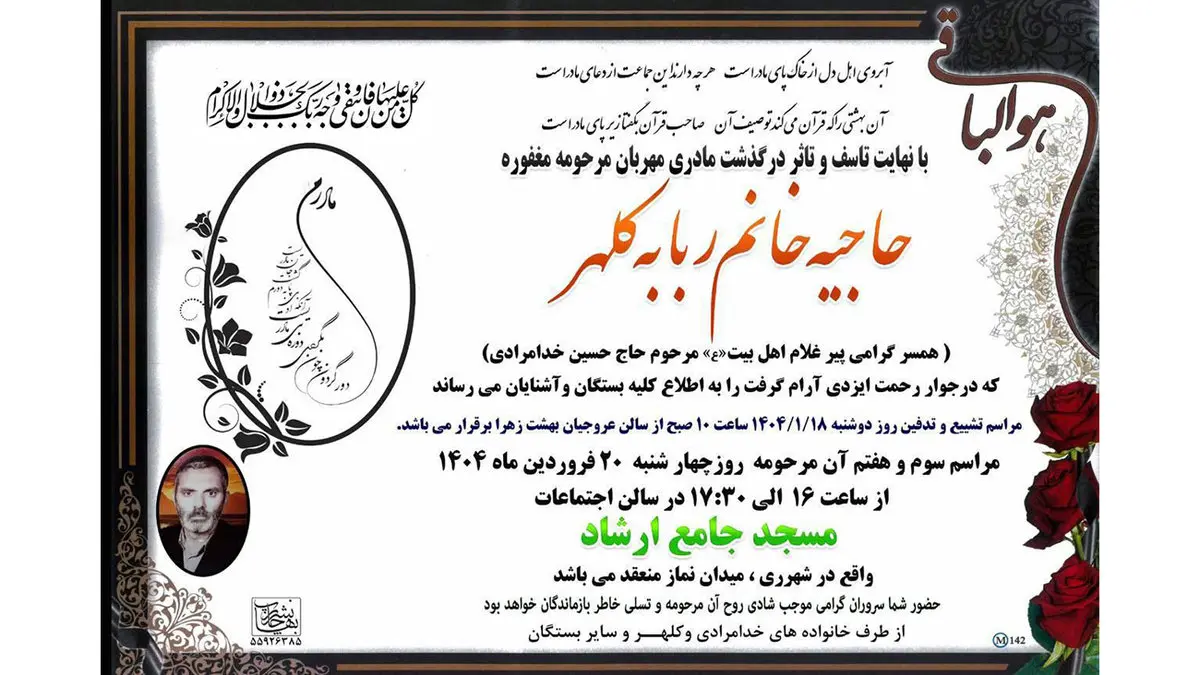 هوالباقی
کل من علیها فان و یبقی وجه ربک ذوالجلال والاکرام
آبروی اهل دل از خاک پای مادر است هرچه دارند این جماعت از دعای مادر است
آن بهشتی را که قرآن می کند توصیف آن صاحب قرآن بگفتا زیر پای مادر است
با نهایت تاسف و تاثر درگذشت مادری مهربان مرحومه مغفوره
حاجیه خانم ربابه کلهر
( همسر گرامی پیر غلام اهل بیت«ع» مرحوم حاج حسین خدامرادی)
که درجوار رحمت ایزدی آرام گرفت را به اطلاع کلیه بستگان وآشنایان می رساند
مراسم تشییع و تدفین روز دوشنبه ۱۴۰۴/۱/۱۸ ساعت ۱۰ صبح از سالن عروجیان بهشت زهرا برقرار می باشد.
مراسم سوم و هفتم آن مرحومه روزچهار شنبه ۲۰ فروردین ماه ۱۴۰۴
از ساعت ۱۶ الی ۱۷:۳۰ در سالن اجتماعات
مسجد جامع ارشاد
واقع در شهرری ، میدان نماز منعقد می باشد
حضور شما سروران گرامی موجب شادی روح آن مرحومه و تسلی خاطر بازماندگان خواهد بود
از طرف خانواده های خدامرادی وکلهر و سایر بستگان
مادرم
۵۵۹۲۶۳۸۵
M 142